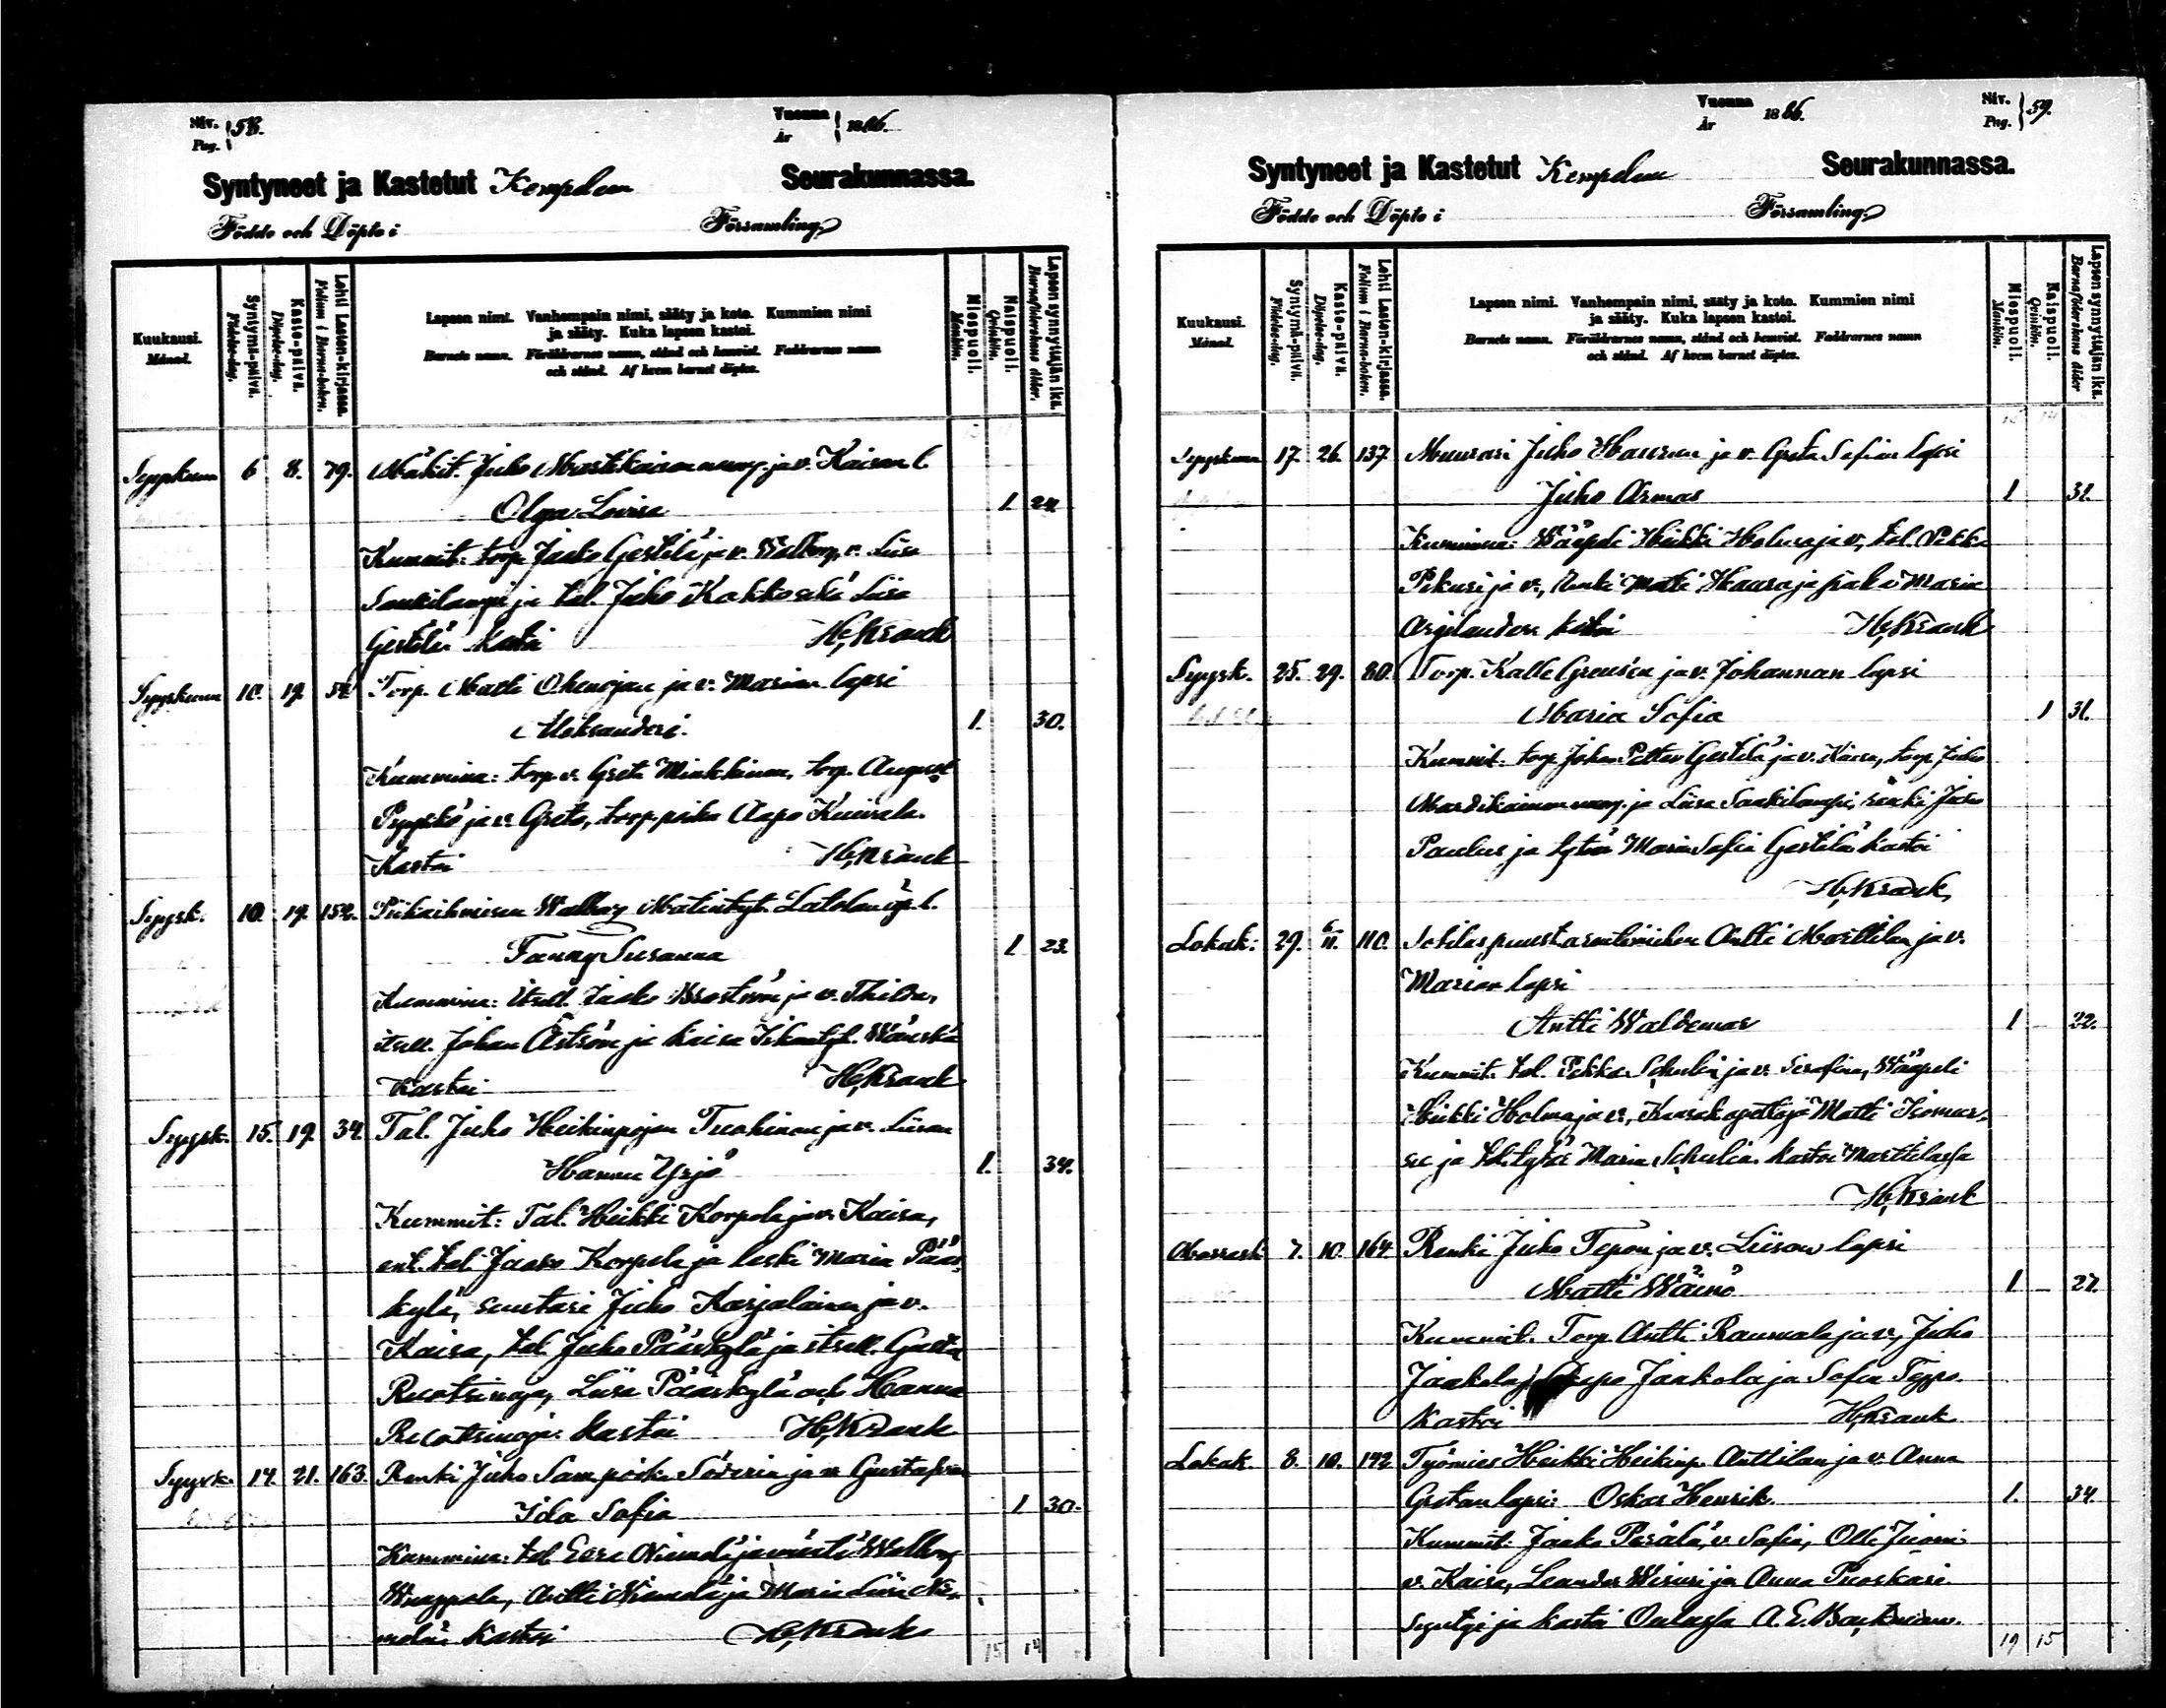 Siv. Pag. 58.
Vuonna År 1886.
Syntyneet ja Kastetut Kempelen Seurakunnassa.
Födde och Döpte i Församling
Kuukausi. Månad.
Syntymä-päivä. Födelse-dag.
Kaste-päivä. Döpelse-dag.
Lehti Lasten-kirjassa. Folium i Barna-boken.
Lapsen nimi. Vanhempain nimi, sääty ja koto. Kummien nimi
ja sääty. Kuka lapsen kastoi.
Barnets namn. Föräldrarnes namn, stånd och hemvist. Faddrarnes namn
och stånd. Af hvem barnet döptes.
Miespuoli. Mankön.
Naispuoli. Qvinkön.
Lapsen synnyttäjän ikä. Barnaföderskans ålder.
Syyskuun 6 8. 79. Mäkit. Juho ja v. Kaisan l.
Olga Lovisa 1 24
Kummit: torp. Jaako Gestilä ja v. Walborg, v. Liisa
Sankilampi ja tal. Juho Kokko sekä Liisa
Gestilä Kastoi H. Krank
Syyskuun 10. 19. 54 Torp. Matti Ohenojan ja v. Marian lapsi
Aleksanderi. 1. 30.
Kummina: torp. v. Greta Minkkinen, torp. August
Pyykkö ja v. Greta, torp. poika Aapo Kuivala.
Kastoi H. Krank
Syysk. 10. 19. 152. Piikaihmisen Walborg Matintyt. Latolan äp. l.
Fanny Susanna 1 23.
Kummina: itsell. Jaako Broström ja v. Thilda,
itsell. Johan Åström ja Kaisa
Kastoi H. Krank
Syysk. 15. 19. 34 Tal. Juho Heikinpojan Tuohinon ja v. Liisan
Hannu Yrjö 1. 34.
Kummit: Tal. Heikki Korpela ja v. Kaisa,
ent. tal. Jaako Korpela ja leski Maria Pääs-
kylä, suutari Juho Karjalainen ja v.
Kaisa, tal. Juho Pääskylä ja itsell. Gusta
Ruotsinoja, Liisa Pääskylä och Hanna
Ruotsinoja. Kastoi H. Krank
Syysk. 14. 21. 163. Renki Juho Sam. poik. Söderin ja v. Gustafvan
Ida Sofia 1 30.
Kummina: tal. Eera Niemelä ja Walborg
Antti Niemelä ja Maria Liisa Nie-
melä. Kastoi H. Krank
15 14
Vuonna År 1886.
Siv. Pag. 59.
Syntyneet ja Kastetut Kempelen Seurakunnassa.
Födde och Döpte i Församling
Kuukausi. Månad.
Syntymä-päivä. Födelse-dag.
Kaste-päivä. Döpelse-dag.
Lehti Lasten-kirjassa. Folium i Barna-boken.
Lapsen nimi. Vanhempain nimi, sääty ja koto. Kummien nimi
ja sääty. Kuka lapsen kastoi.
Barnets namn. Föräldrarnes namn, stånd och hemvist. Faddrarnes namn
och stånd. Af hvem barnet döptes.
Miespuoli. Mankön.
Naispuoli. Qvinkön.
Lapsen synnyttäjän ikä. Barnaföderskans ålder
15 14
Syyskuun 17. 26. 137 Muurari Juho Hauran ja v. Greta Sofian lapsi
Juho Armas 1 31.
Kummina: Wääpeli Heikki Holma ja v., tal. Pekka
Pekuri ja v., renki Matti Haura ja piika Maria
Argelander. Kastoi H. Krank
Syysk. 25. 29. 80. Torp. Kalle ja v. Johannan lapsi
Maria Sofia 1 31.
Kummit: torp. Johan Petter Gestilä ja v. Kaisa, torp. Juho
ja Liisa Sankilampi, renki Jako
Paulus ja tytär Maria Sofia Gestilä Kastoi
H. Krank,
Lokak: 29. 6/11. 110. Antti Marttilan ja v.
Marian lapsi
Antti Waldemar 1 22.
Kummit: tal. Pekka Schulin ja v. Serafina, Wääpeli
Heikki Holma ja v., Matti Isomur-
su ja tal. tytär Maria Schulin. Kastoi Marttilassa
H. Krank
Marrask. 7. 10. 164. Renki Juho Tepon ja v. Liisan lapsi
Matti Wäinö 1 27.
Kummit: Torp. Antti Raumala ja v., Juho
Jaakola, Aapo Jaakola ja Sofia Teppo.
Kastoi H. Krank
Lokak. 8. 10. 142 Työmies Heikki Heikinp. Anttilan ja v. Anna
Gretan lapsi: Oskar Henrik 1. 34.
Kummit: Jaako Perälä, v. Sofia, Olli Juoni
v. Kaisa, Leander Wiruri ja Anna Puoskari.
Syntyi ja kasta Oulussa A. E.
19 15